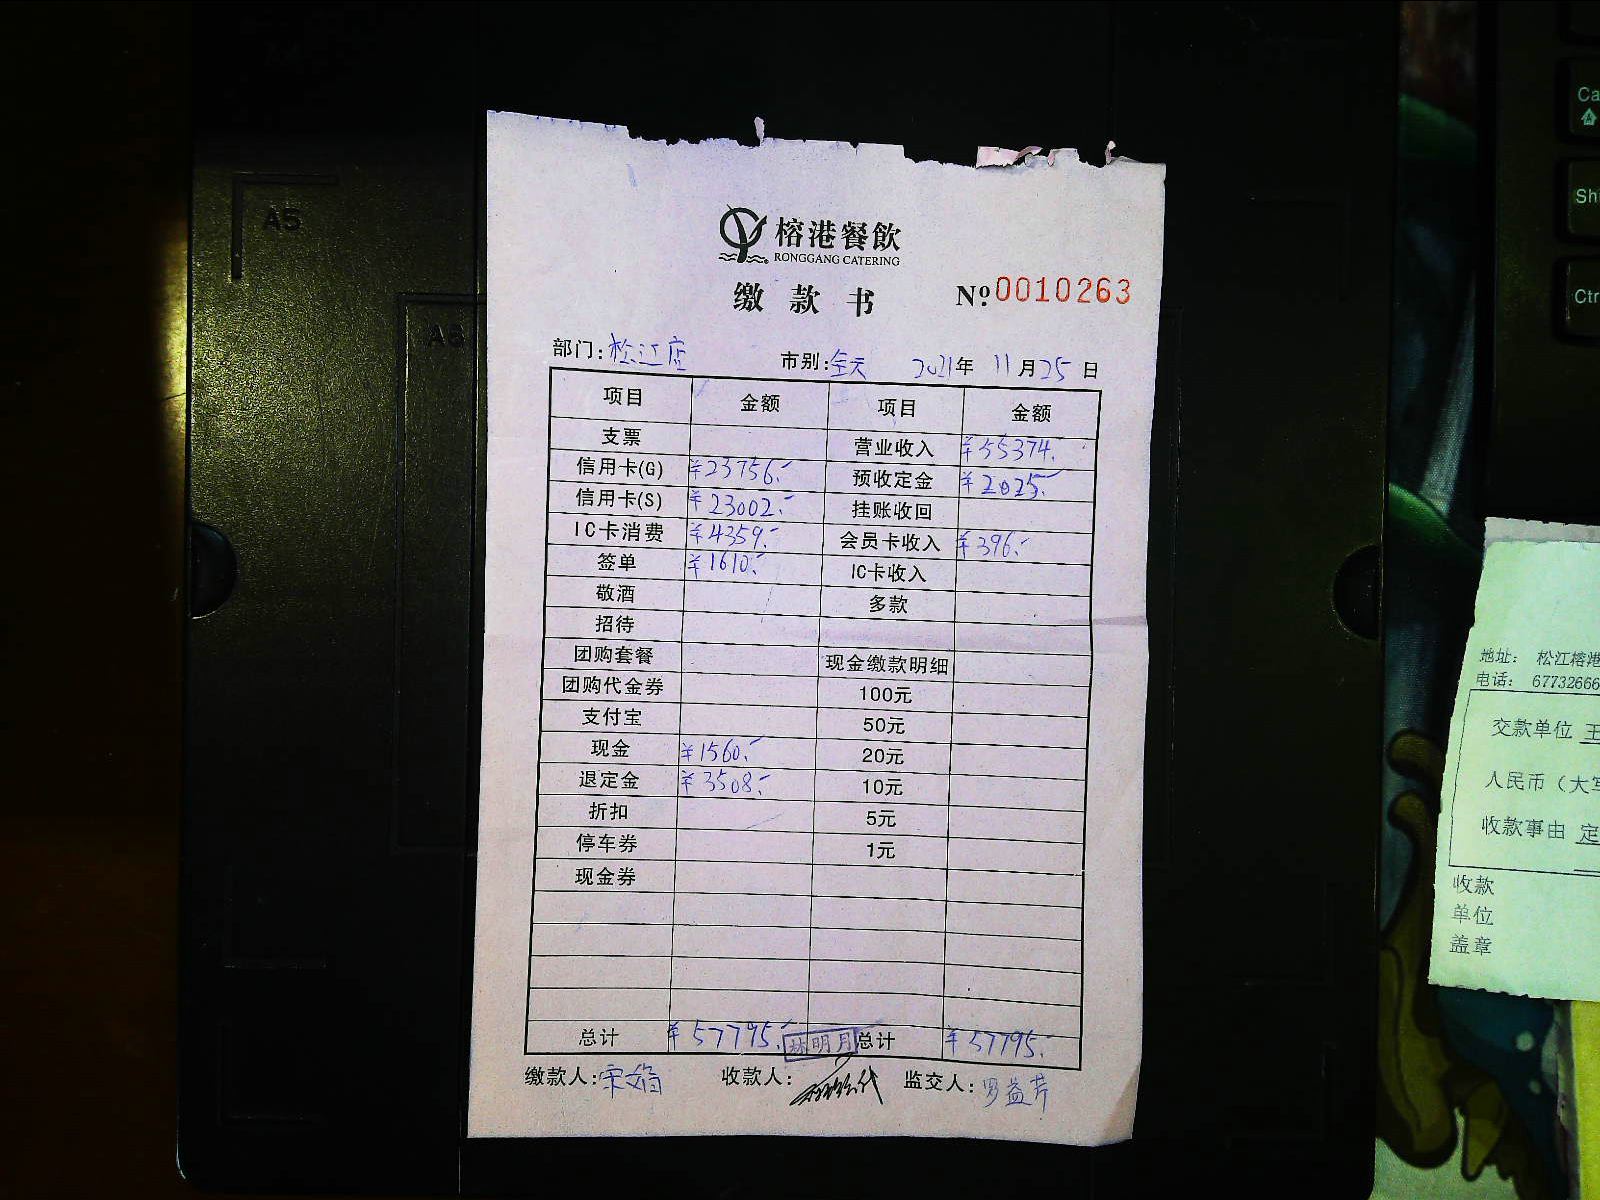 A5
A6
榕港餐飲
RONGGANG CATERING
缴款书
№0010263
部门:松江店 市别:全天 2021年 11月25日
项目 金额 项目 金额
支票 营业收入 ¥55374.-
信用卡(G) ¥23756.- 预收定金 ¥2025.-
信用卡(S) ¥23002.- 挂账收回
IC卡消费 ¥4359.- 会员卡收入 ¥396.-
签单 ¥1610.- IC卡收入
敬酒 多款
招待
团购套餐 现金缴款明细
团购代金券 100元
支付宝 50元
现金 ¥1560.- 20元
退定金 ¥3508.- 10元
折扣 5元
停车券 1元
现金券
总计 ¥57795.- 总计 ¥57795.-
林明月
缴款人: 收款人: 监交人:罗益芹
Ca
Shi
Ctr
地址: 松江榕港
电话: 67732666
交款单位 王
人民币(大写
收款事由 定
收款
单位
盖章